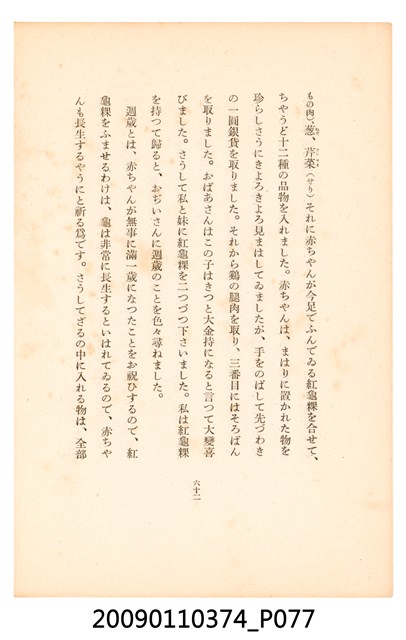 もの肉)、葱、芹菜(せり)それに赤ちやんが今足でふんでゐる紅龜粿を合せて、
ちやうど十二種の品物を入れました。赤ちやんは、まはりに置かれた物を
珍らしさうにきよろきよろ見まはしてゐましたが、手をのばして先づわき
の一圓銀貨を取りました。それから鷄の腿肉を取り、三番目にはそろばん
を取りました。おばあさんはこの子はきつと大金持になると言つて大變喜
びました。さうして私と妹に紅龜粿を二つづつ下さいました。私は紅龜粿
を持つて歸ると、おぢいさんに週歲のことを色々尋ねました。
週歲とは、赤ちやんが無事に滿一歲になつたことをお祝ひするので、紅
龜粿をふませるわけは、龜は非常に長生するといはれてゐるので、赤ちや
んも長生するやうにと祈る爲です。さうしてざるの中に入れる物は、全部
六十二
20090110374_P077